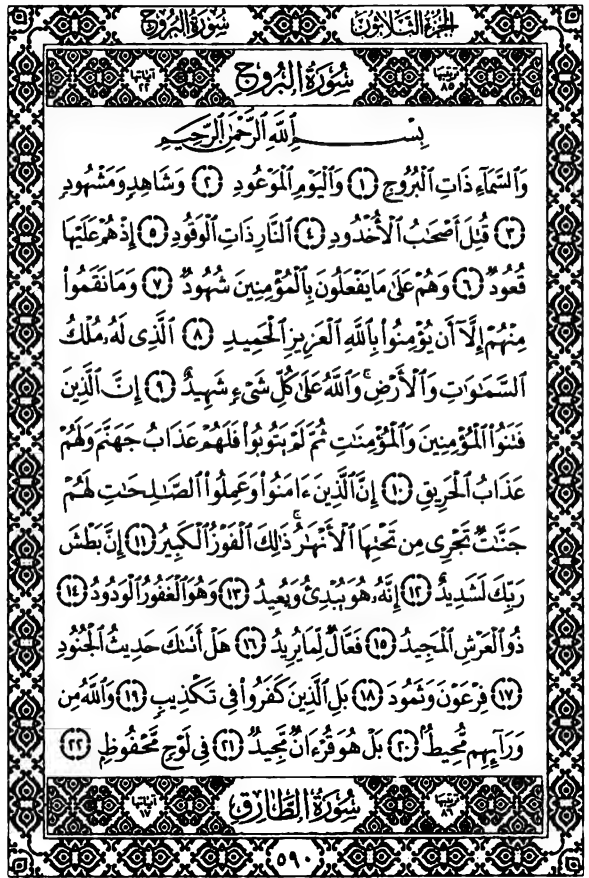 سُورَةُ البُرُوج الجُزْءُ الثَّلَاثُونَ
ترتيبها ٨٥ سُورَةُ البُرُوج آياتها ٢٢
بِسْمِ اللَّهِ الرَّحْمَٰنِ الرَّحِيمِ
وَٱلسَّمَآءِ ذَاتِ ٱلۡبُرُوجِ ١ وَٱلۡيَوۡمِ ٱلۡمَوۡعُودِ ٢ وَشَاهِدٖ وَمَشۡهُودٖ
٣ قُتِلَ أَصۡحَٰبُ ٱلۡأُخۡدُودِ ٤ ٱلنَّارِ ذَاتِ ٱلۡوَقُودِ ٥ إِذۡ هُمۡ عَلَيۡهَا
قُعُودٞ ٦ وَهُمۡ عَلَىٰ مَا يَفۡعَلُونَ بِٱلۡمُؤۡمِنِينَ شُهُودٞ ٧ وَمَا نَقَمُواْ
مِنۡهُمۡ إِلَّآ أَن يُؤۡمِنُواْ بِٱللَّهِ ٱلۡعَزِيزِ ٱلۡحَمِيدِ ٨ ٱلَّذِي لَهُۥ مُلۡكُ
ٱلسَّمَٰوَٰتِ وَٱلۡأَرۡضِۚ وَٱللَّهُ عَلَىٰ كُلِّ شَيۡءٖ شَهِيدٌ ٩ إِنَّ ٱلَّذِينَ
فَتَنُواْ ٱلۡمُؤۡمِنِينَ وَٱلۡمُؤۡمِنَٰتِ ثُمَّ لَمۡ يَتُوبُواْ فَلَهُمۡ عَذَابُ جَهَنَّمَ وَلَهُمۡ
عَذَابُ ٱلۡحَرِيقِ ١٠ إِنَّ ٱلَّذِينَ ءَامَنُواْ وَعَمِلُواْ ٱلصَّٰلِحَٰتِ لَهُمۡ
جَنَّٰتٞ تَجۡرِي مِن تَحۡتِهَا ٱلۡأَنۡهَٰرُۚ ذَٰلِكَ ٱلۡفَوۡزُ ٱلۡكَبِيرُ ١١ إِنَّ بَطۡشَ
رَبِّكَ لَشَدِيدٌ ١٢ إِنَّهُۥ هُوَ يُبۡدِئُ وَيُعِيدُ ١٣ وَهُوَ ٱلۡغَفُورُ ٱلۡوَدُودُ ١٤
ذُو ٱلۡعَرۡشِ ٱلۡمَجِيدُ ١٥ فَعَّالٞ لِّمَا يُرِيدُ ١٦ هَلۡ أَتَىٰكَ حَدِيثُ ٱلۡجُنُودِ
١٧ فِرۡعَوۡنَ وَثَمُودَ ١٨ بَلِ ٱلَّذِينَ كَفَرُواْ فِي تَكۡذِيبٖ ١٩ وَٱللَّهُ مِن
وَرَآئِهِم مُّحِيطُۢ ٢٠ بَلۡ هُوَ قُرۡءَانٞ مَّجِيدٞ ٢١ فِي لَوۡحٖ مَّحۡفُوظِۭ ٢٢
ترتيبها ٨٦ سُورَةُ الطَّارِق آياتها ١٧
٥٩٠